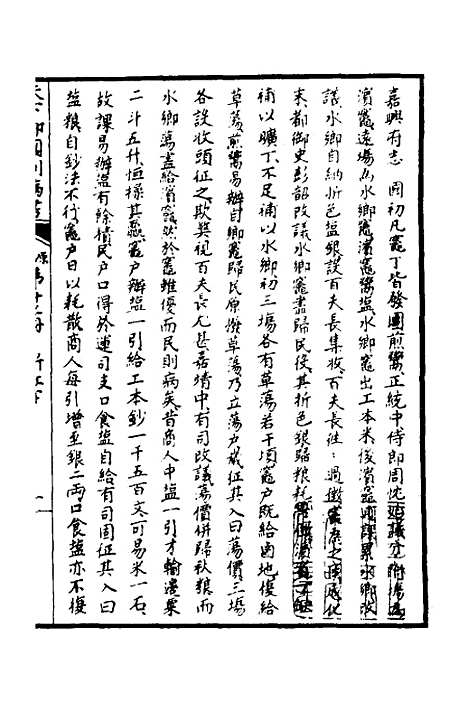 嘉興府志 國初凡竈丁皆發團煎鬻正統中侍郎周忱廷議分附場為
濱竈遠場為水鄉竈濱竈鬻塩水鄉竈出工本米後濱竈課累水鄉改
議水鄉自納折色塩銀設百夫長集收百夫長往〻過徵
末都御史彭韶改議水鄉竈盡歸民役其折色銀歸粮耗
補以曠丁不足補以水鄉初三塲各有草蕩若干頃竈户既給卤地復給
草蕩煎鬻易辦自卿竈歸民原撥草蕩乃立蕩户歲征其入曰蕩價三塲
各設收頭征之欺獘視百夫長尤甚嘉靖中有司改議蕩價併歸秋粮而
水鄉蕩盡給濱竈然於竈雖優而民則病矣昔商人中塩一引才輸邊粟
二斗五升恒操其贏竈户辦塩一引給工本鈔一千五百文可易米一石
故課易辦塩有餘積民户口得於運司支口食塩自給有司因征其入曰
塩粮自鈔法不行竈户日以耗散商人每引增至銀二两口食塩亦不復